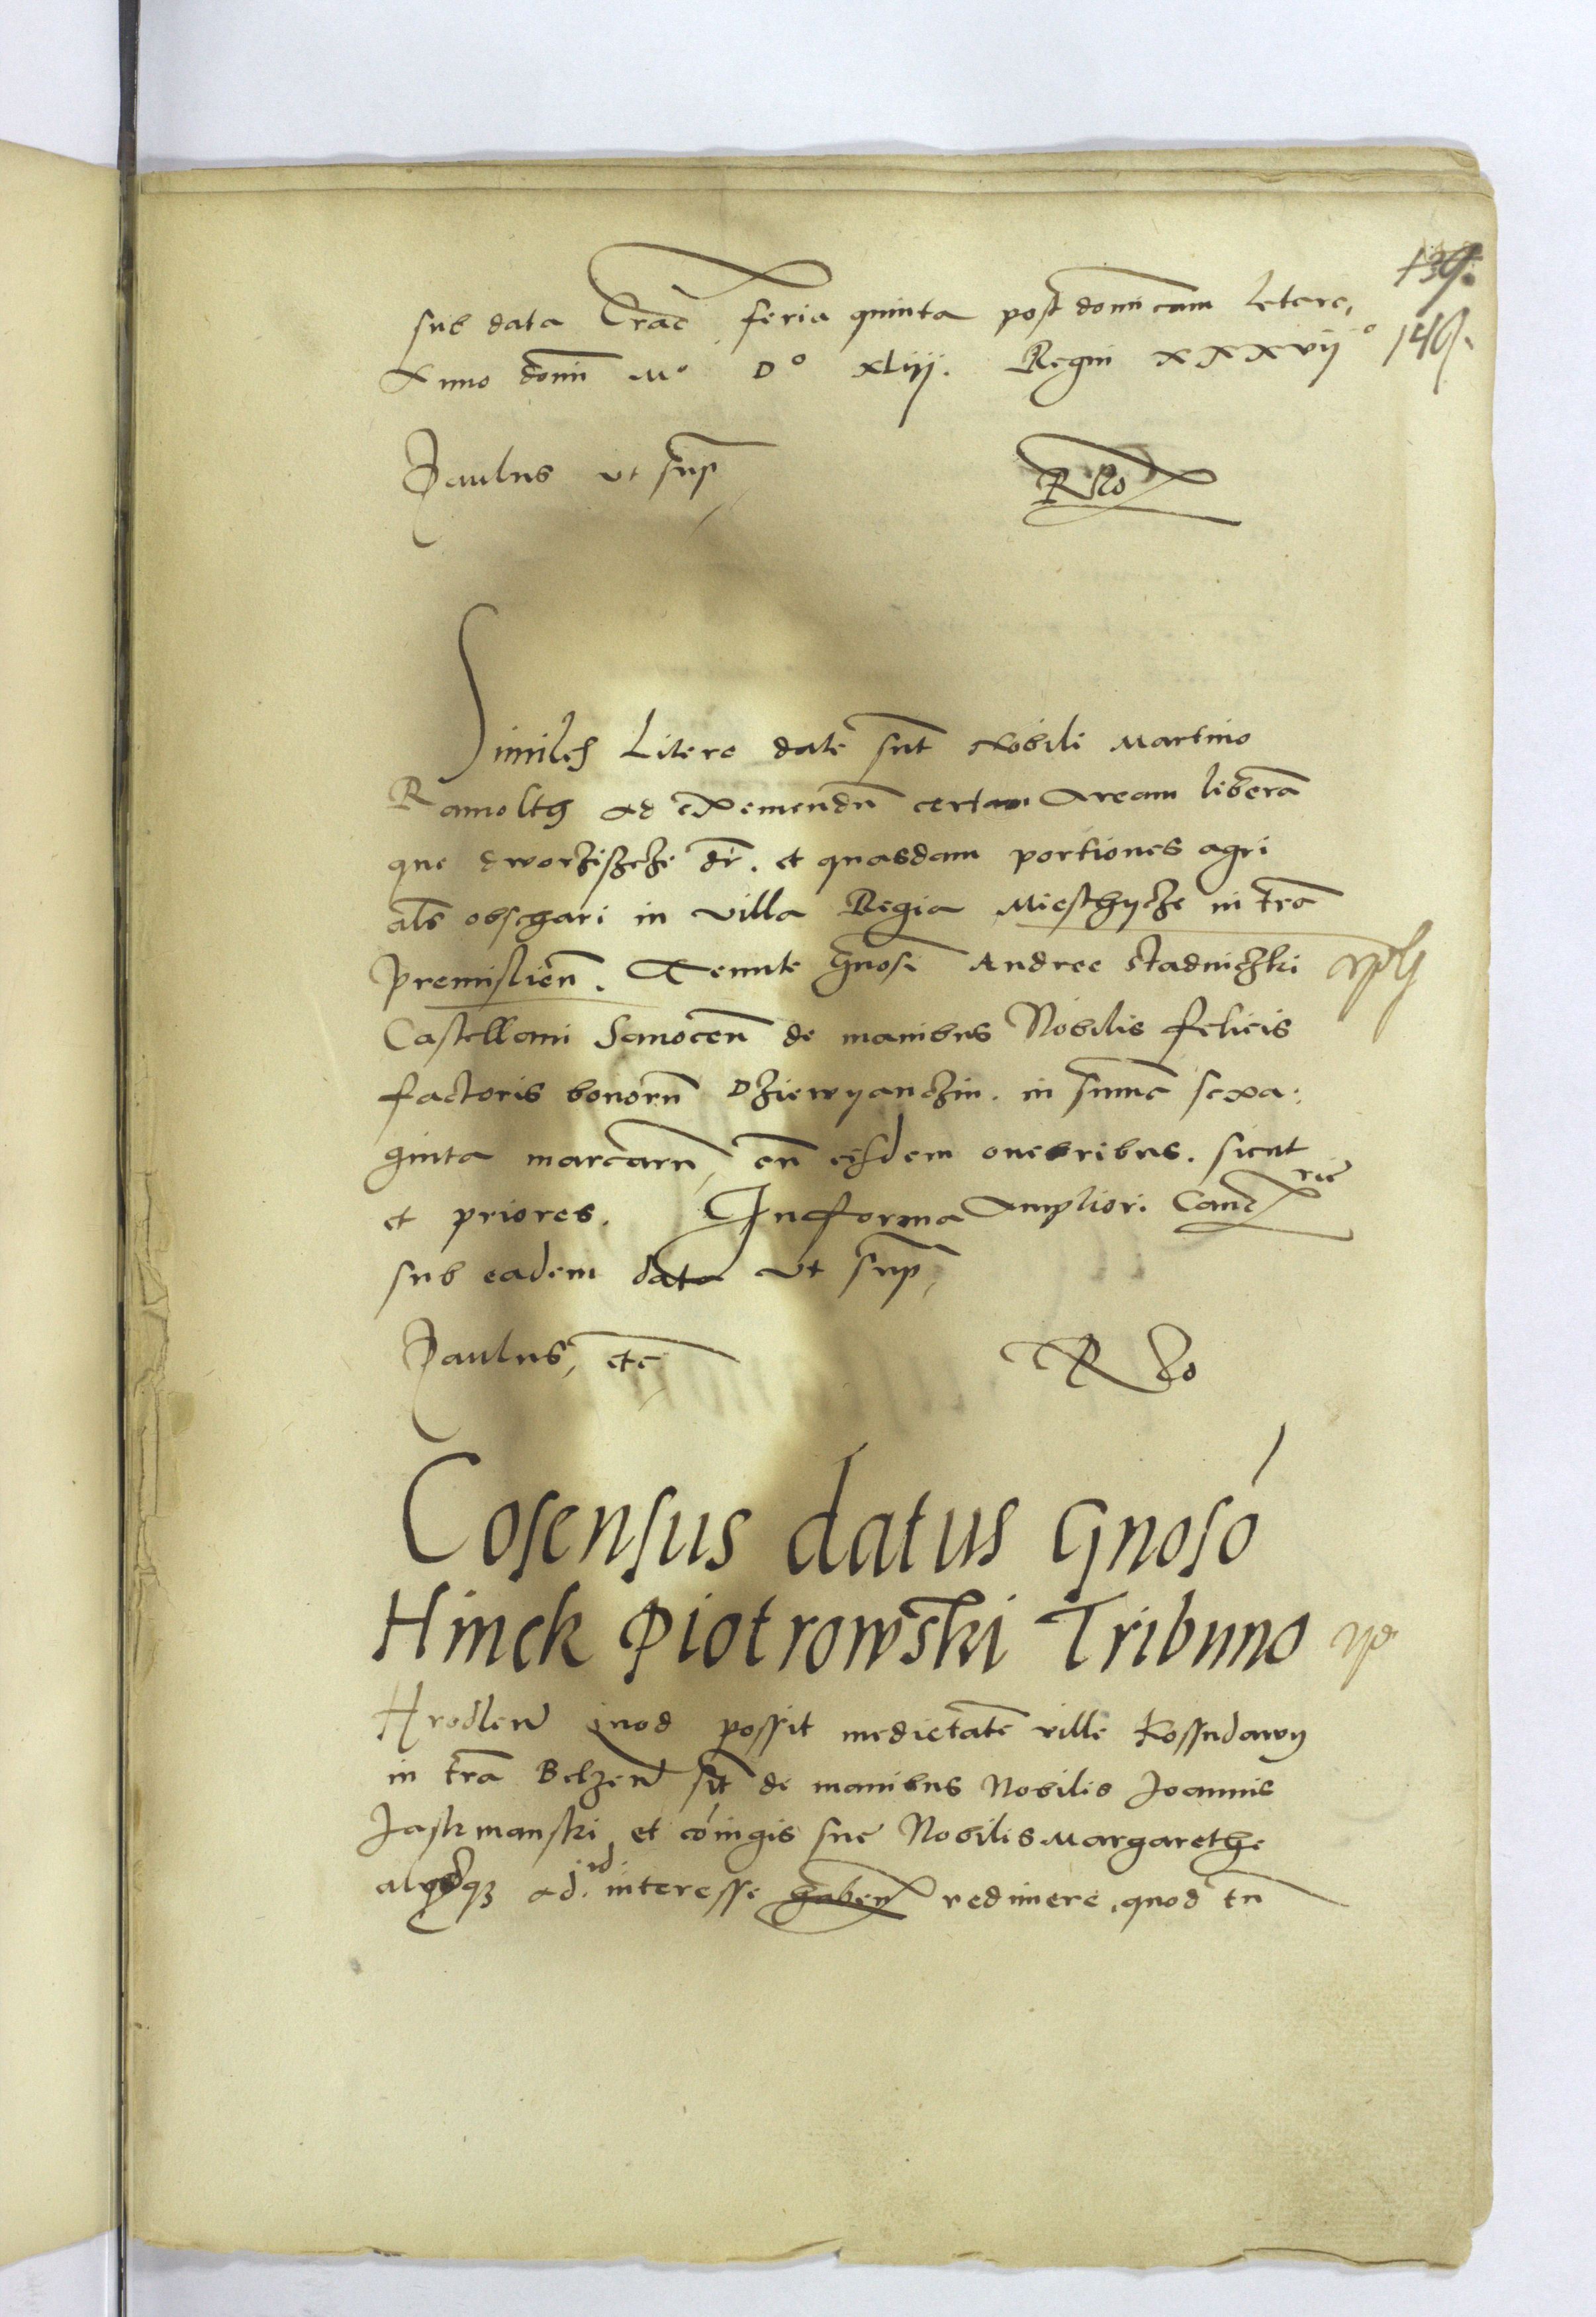 139.
sub data Crac̄ feria quinta post domīcam letare,
140.
Anno domī Mº Dº xliij. Regni xxxvijº
Paulus ut sup̄
R Sto
Similes Litere date sūt Nobili Martino
Ramolth ad exemendū certam Aream liberā
que dworzisze dr̄. et quasdam portiones agri
als̄ obschari in villa Regia Miesthycze in trā
Premislień. Tenute Gnōsi Andree Stadniczki
Castellani Sanoceń de manibus Nobilis felicis
factoris bonorū Dziewyanczin. in sūma sexa:
ginta marcarū, cū eisdem oneribus. sicut
et priores. In forma Ampliori Cancrie
sub eadem data ut sup̄,
Paulus, etc̄
R Sto
Cōsensus datus Gnōsó
Hinck Piotrowski Tribuno
Hrodleń quod possit medietatē ville Kossudawy
in trā Belzeń sit̄ de manibus Nobilis Joannis
Jaskmanski et cōiugis sue Nobilis Margarethe
ad id interesse haben̄ redimere, quod tn̄